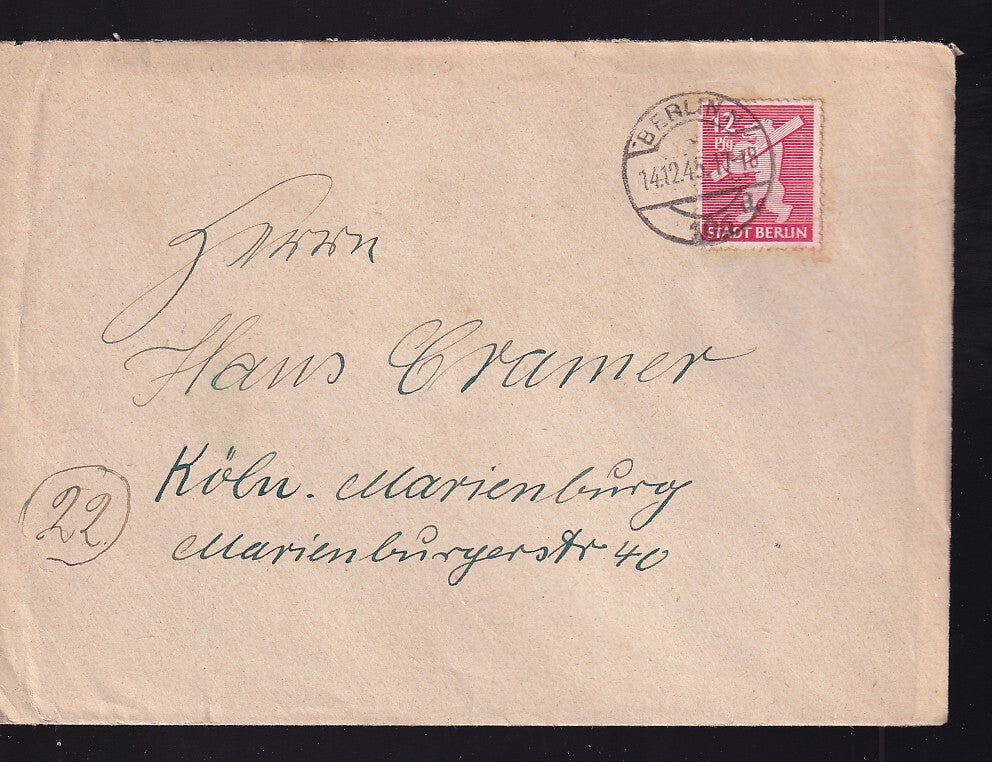 BERLIN
14.12.45.17-18
a
12
Pfg
STADT BERLIN
Herrn
Hans Cramer
Köln. Marienburg
22
Marienburgerstr 40